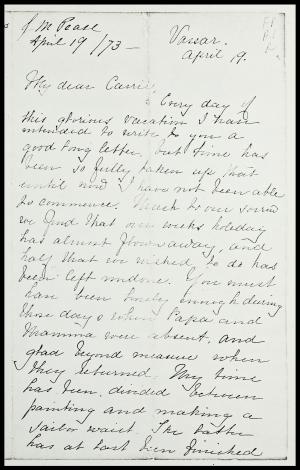 J. M. Pease
April 19/73 -
Vassar.
April 19.
My dear Carrie,
Every day of
this glorious vacation I have
intended to write to you a
good long letter, but time has
been so fully taken up that
until now I have not been able
to commence. Much to our sorrow
we find that our weeks holiday
has almost flown away, and
half that we wished to do has
been left undone. You must
have been lonely enough during
those days when Papa and
Mamma were absent, and
glad beyond measure when
they returned. My time
has been divided between
painting and making a
sailor waist. The latter
has at last been finished